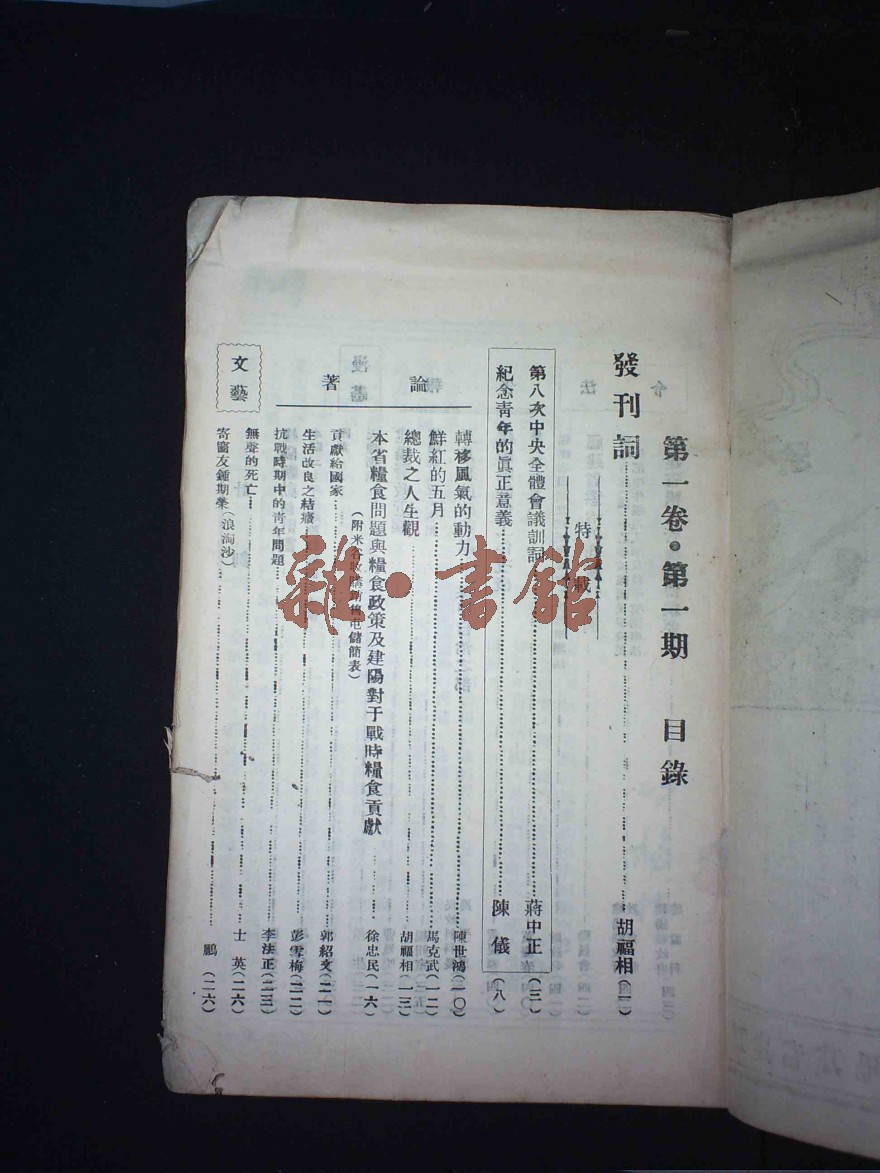 第一卷·第一期 目錄
發刊詞 胡福相(一)
特載
第八次中央全體會議訓詞 蔣中正(三)
紀念青年的真正意義 陳儀(八)
論著
轉移風氣的動力 陳世鴻(一〇)
鮮紅的五月 馬克武(一二)
總裁之人生觀 胡福相(一三)
本省糧食問題與糧食政策及建陽對于戰時糧食貢獻 徐忠民(一六)
(附米谷收購 儲簡表)
貢獻給國家 郭紹文(二一)
生活改良之結癥 彭雪梅(二二)
抗戰時期中的青年問題 李法正(二三)
文藝
無聲的死亡 士英(二六)
寄窗友鍾期榮(浪淘沙) 鵬(二六)
雜·書館